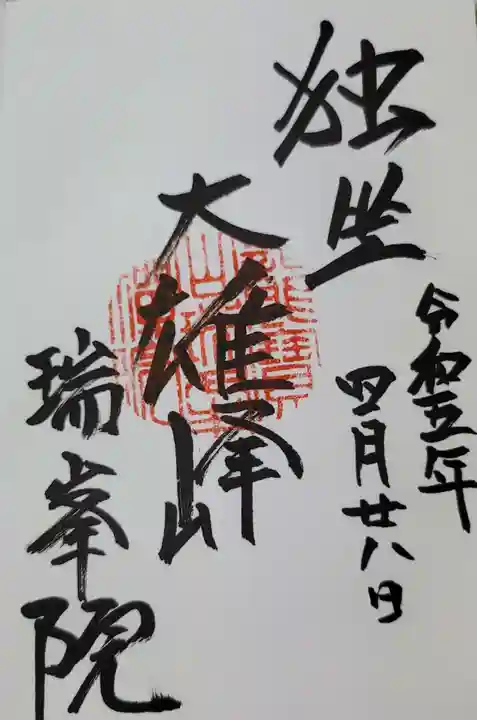 独坐
大雄峰
令和五年
四月廿八日
瑞峯院